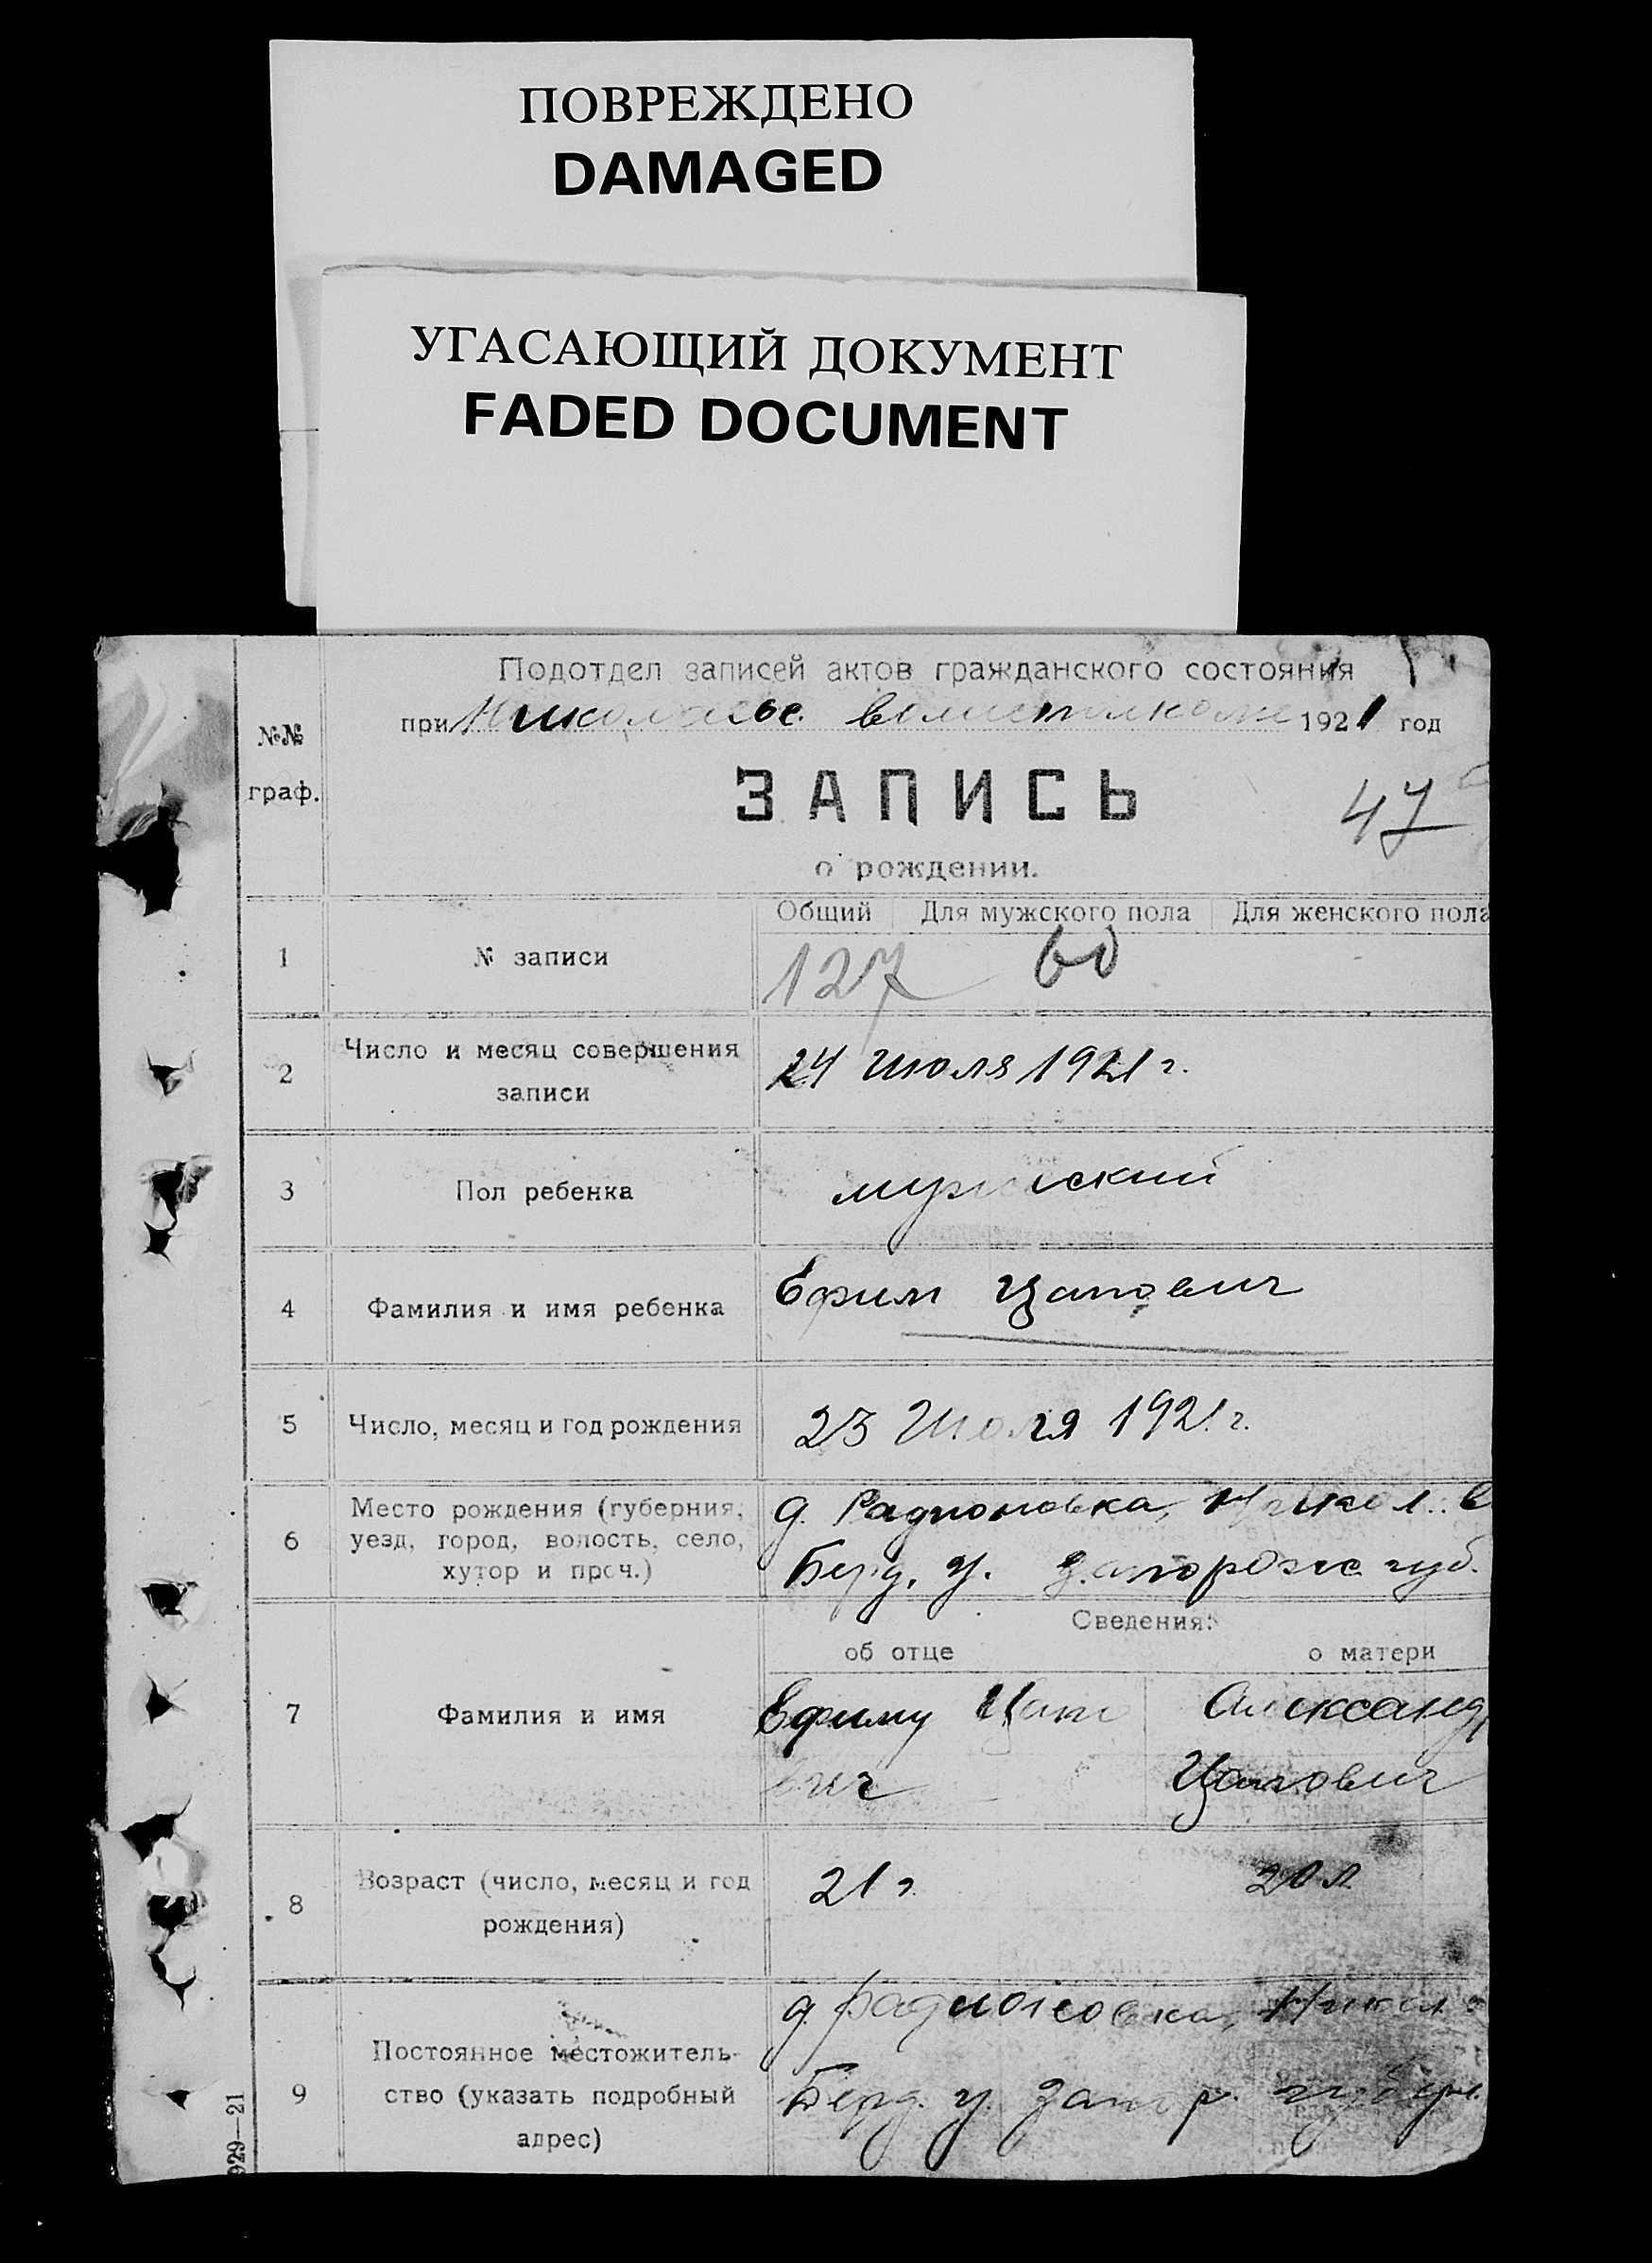 ПОВРЕЖДЕНО
DAMAGED
УГАСАЮЩИЙ ДОКУМЕНТ
FADED DOCUMENT
Подотдел записей актов гражданского состояния
при 1921 год
№№
граф.
ЗАПИСЬ
47
о рождении.
Общий Для мужского пола Для женского пола
1 № записи 127 60
2 Число и месяц совершения
записи
24 июля 1921 г.
3 Пол ребенка мужский
4 Фамилия и имя ребенка Ефим Цапович
5 Число, месяц и год рождения 23 Июля 1921 г.
6 Место рождения (губерния,
уезд, город, волость, село,
хутор и проч.)
д. Радионовка, Никол. в
Берд. у. Запорожс. губ.
Сведения:
об отце о матери
7 Фамилия и имя
Ефиму Цапо
вич
Александ
Цапович
8 Возраст (число, месяц и год
рождения)
21 г. 20 л.
9 Постоянное местожитель-
ство (указать подробный
адрес)
д. Радионовка, Никол
Берд. у. Запор. губерн.
929—21